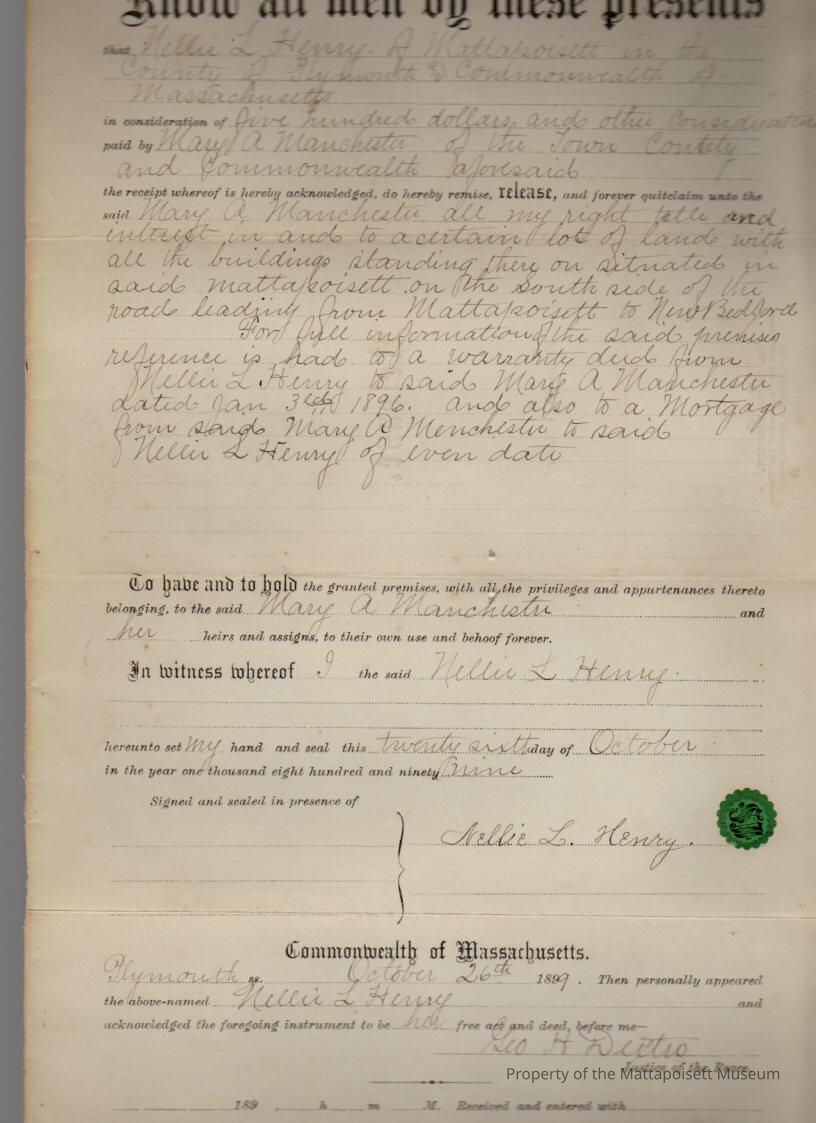 Know all men by these presents
that Nellie L Henry. of Mattapoisett in the
County of Plymouth & Commonwealth of
Massachusetts
in consideration of five hundred dollars and other Consideration
paid by Mary A Manchester of the Town County
and Commonwealth aforesaid
the receipt whereof is hereby acknowledged, do hereby remise, release, and forever quitclaim unto the
said Mary A. Manchester all my right title and
interest in and to a certain lot of land with
all the buildings standing there on situated in
said mattapoisett on the South side of the
road leading from Mattapoisett to New Bedford
For full information of the said premises
reference is had to a warranty deed from
Nellie L Henry to said Mary A Manchester
dated Jan 1896. and also to a Mortgage
from said Mary A Menchester to said
Nellie L Henry of even date
To have and to hold the granted premises, with all the privileges and appurtenances thereto
belonging, to the said Mary A Manchester and
her heirs and assigns, to their own use and behoof forever.
In witness whereof I the said Nellie L Henry.
hereunto set my hand and seal this twenty sixth day of October
in the year one thousand eight hundred and ninety nine
Signed and sealed in presence of
Nellie L. Henry.
Commonwealth of Massachusetts.
Plymouth ss. October 26th 1899. Then personally appeared
the above-named Nellie L Henry and
acknowledged the foregoing instrument to be her free act and deed, before me—
Geo H
Justice of the Peace.
Property of the Mattapoisett Museum
189 , h m M. Received and entered with